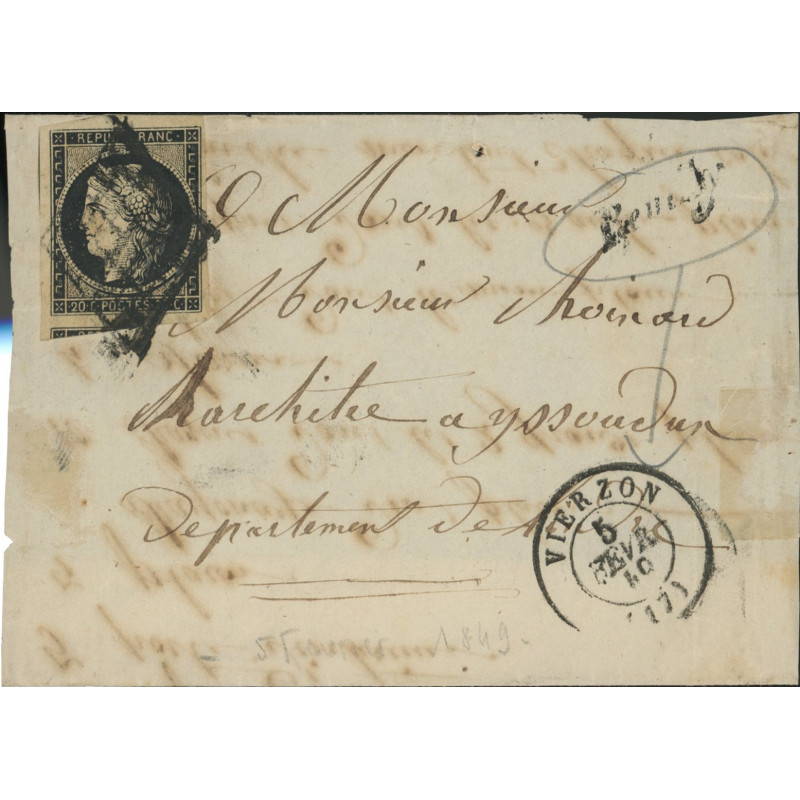 REPUB FRANC
20 C POSTES 20 C
Monsieur
Monsieur Thoinard
Marchitre a yssoudun
Departement De
VIERZON
5
FEVR
(17)
1849.